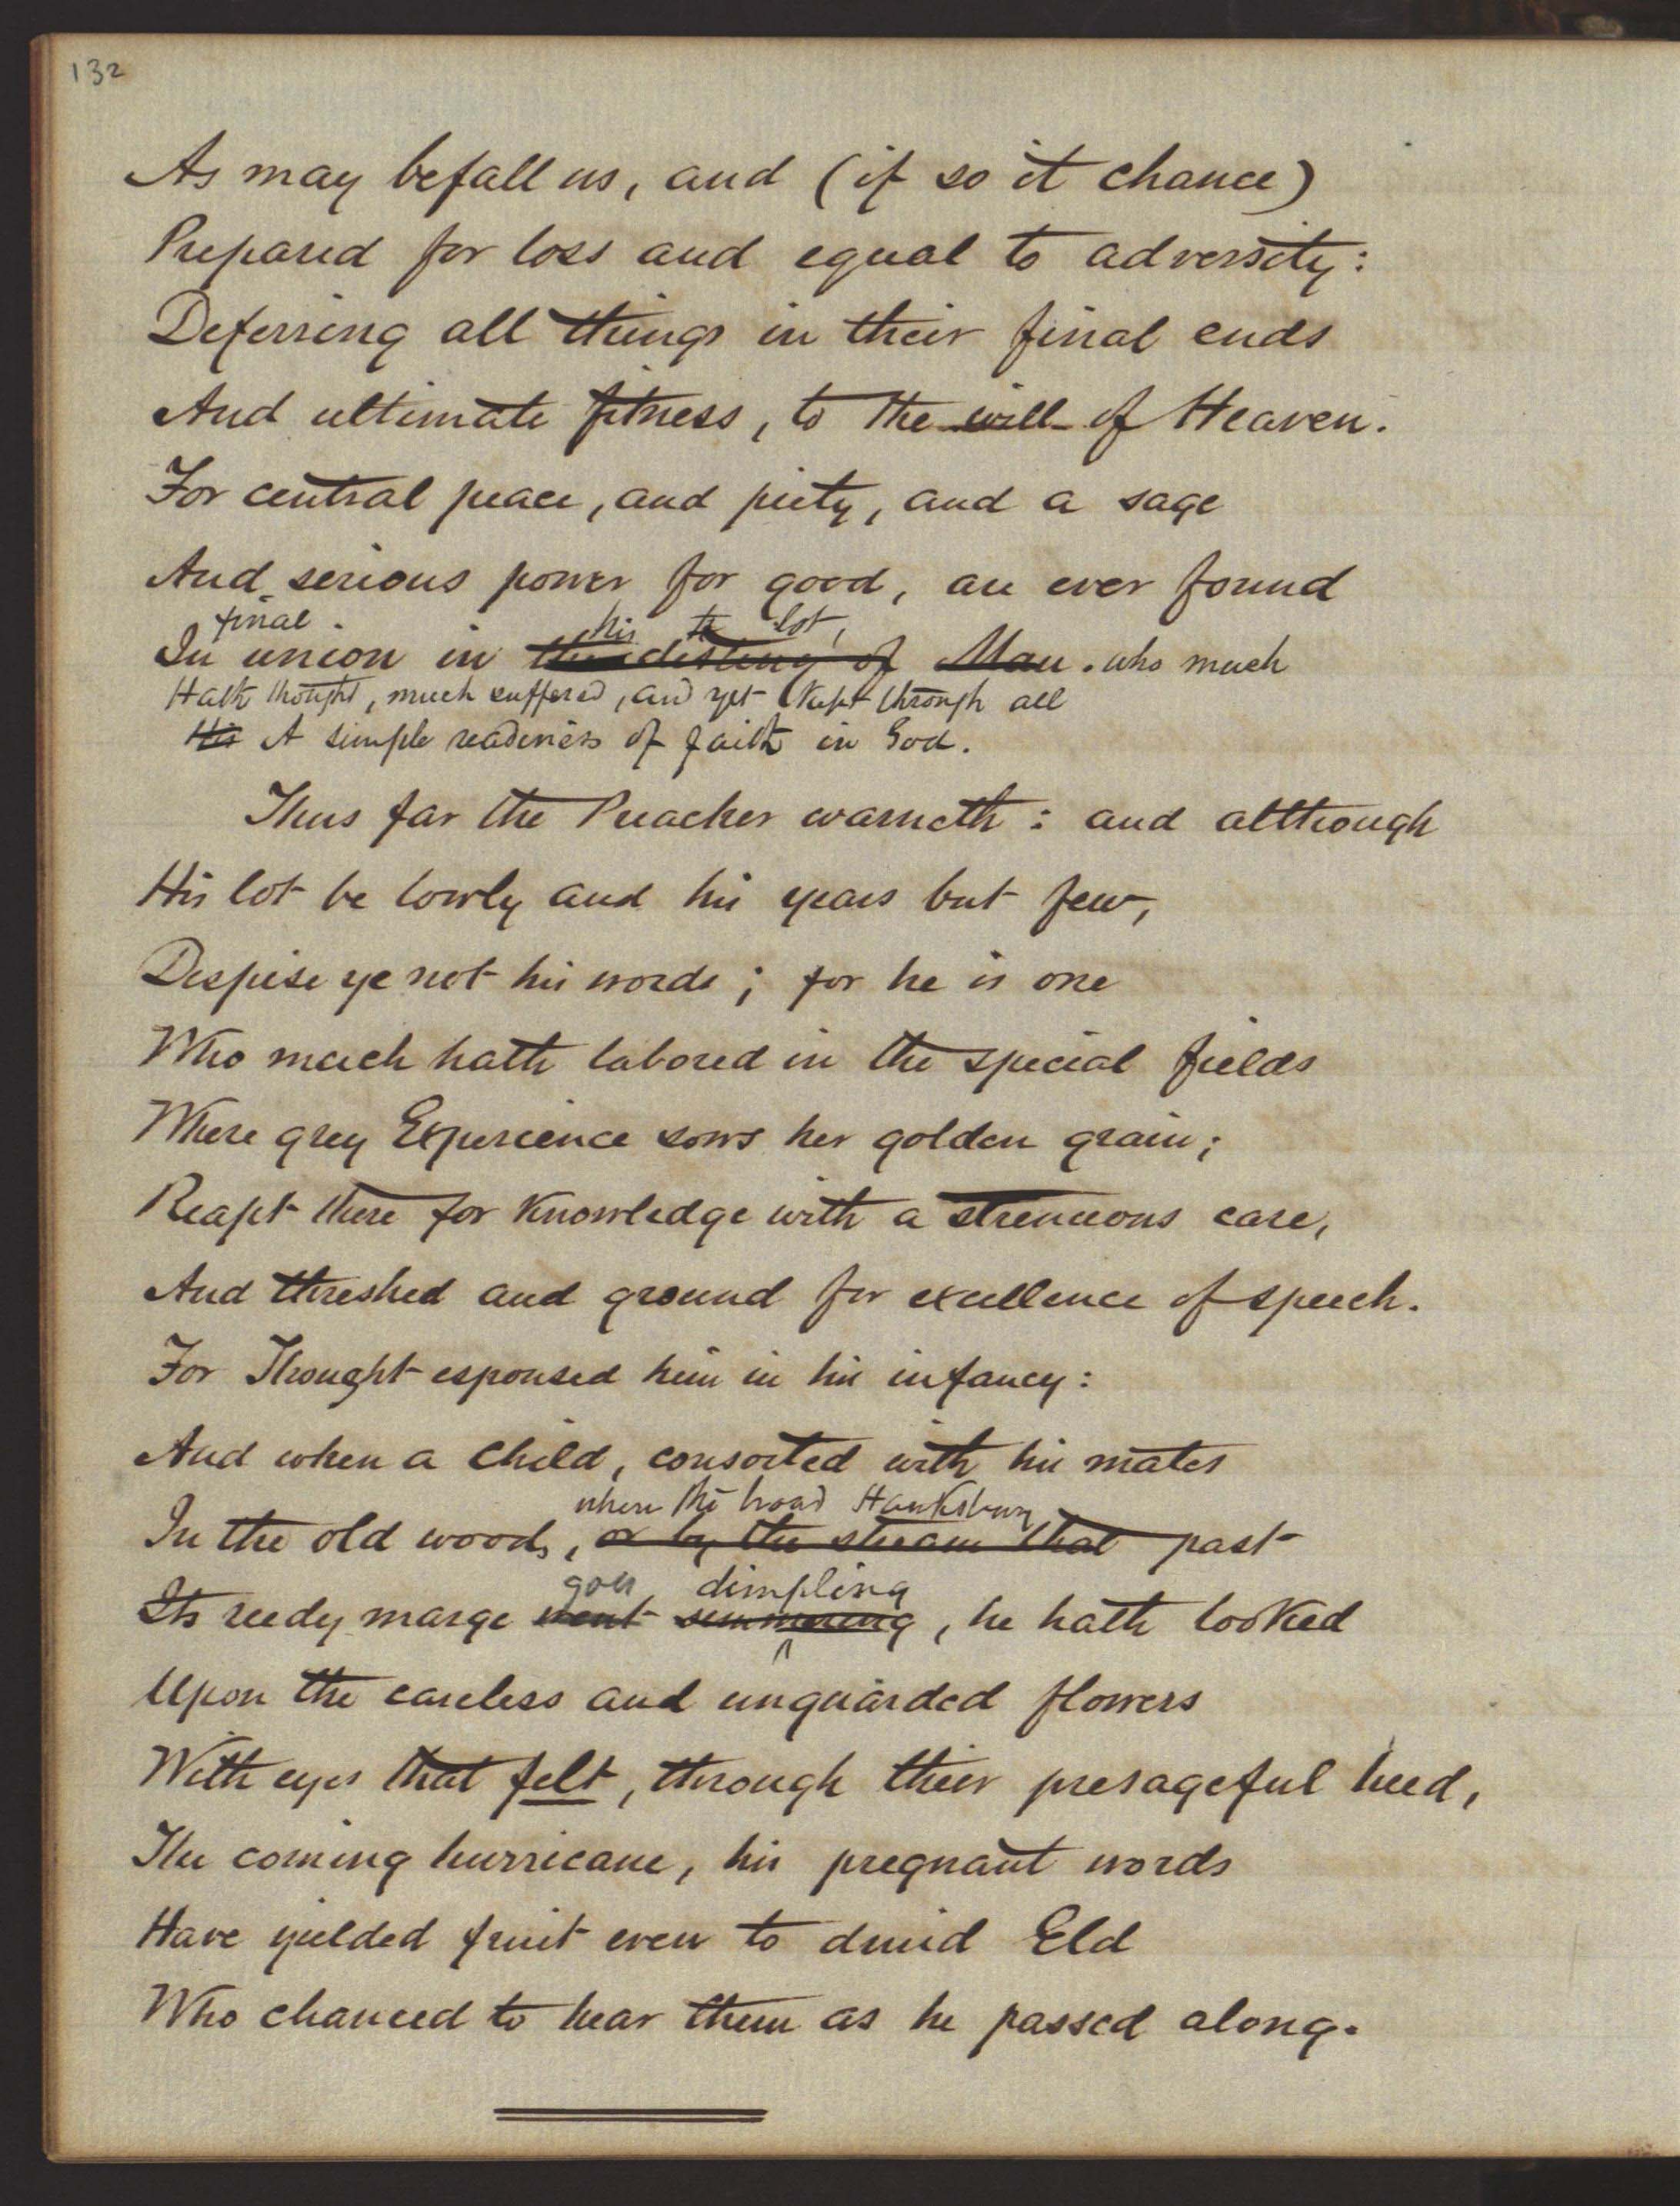 132
As may befall us, and (if so it chance)
Prepared for loss and equal to adversity:
Deferring all things in their final ends
And ultimate fitness, to the will of Heaven.
For central peace, and piety, and a sage
And serious power for good, are ever found
final his lot,
In union in the destiny of Man. who much
Hath thought, much suffered, and yet kept through all
His A simple readiness of faith in God.
Thus far the Preacher warneth: and although
His lot be lowly and his years but few,
Despise ye not his words; for he is one
Who much hath labored in the special fields
Where grey Experience sows her golden grain;
Reapt there for knowledge with a strenuous care,
And threshed and ground for excellence of speech.
For Thought espoused him in his infancy:
And when a child, consorted with his mates
where the broad Hawksbury
In the old woods, or by the stream that past
goes dimpling
Its reedy marge went simmering, he hath looked
Upon the careless and unguarded flowers
With eyes that felt, through their presageful heed,
The coming hurricane, his pregnant words
Have yielded fruit even to druid Eld
Who chanced to hear them as he passed along.